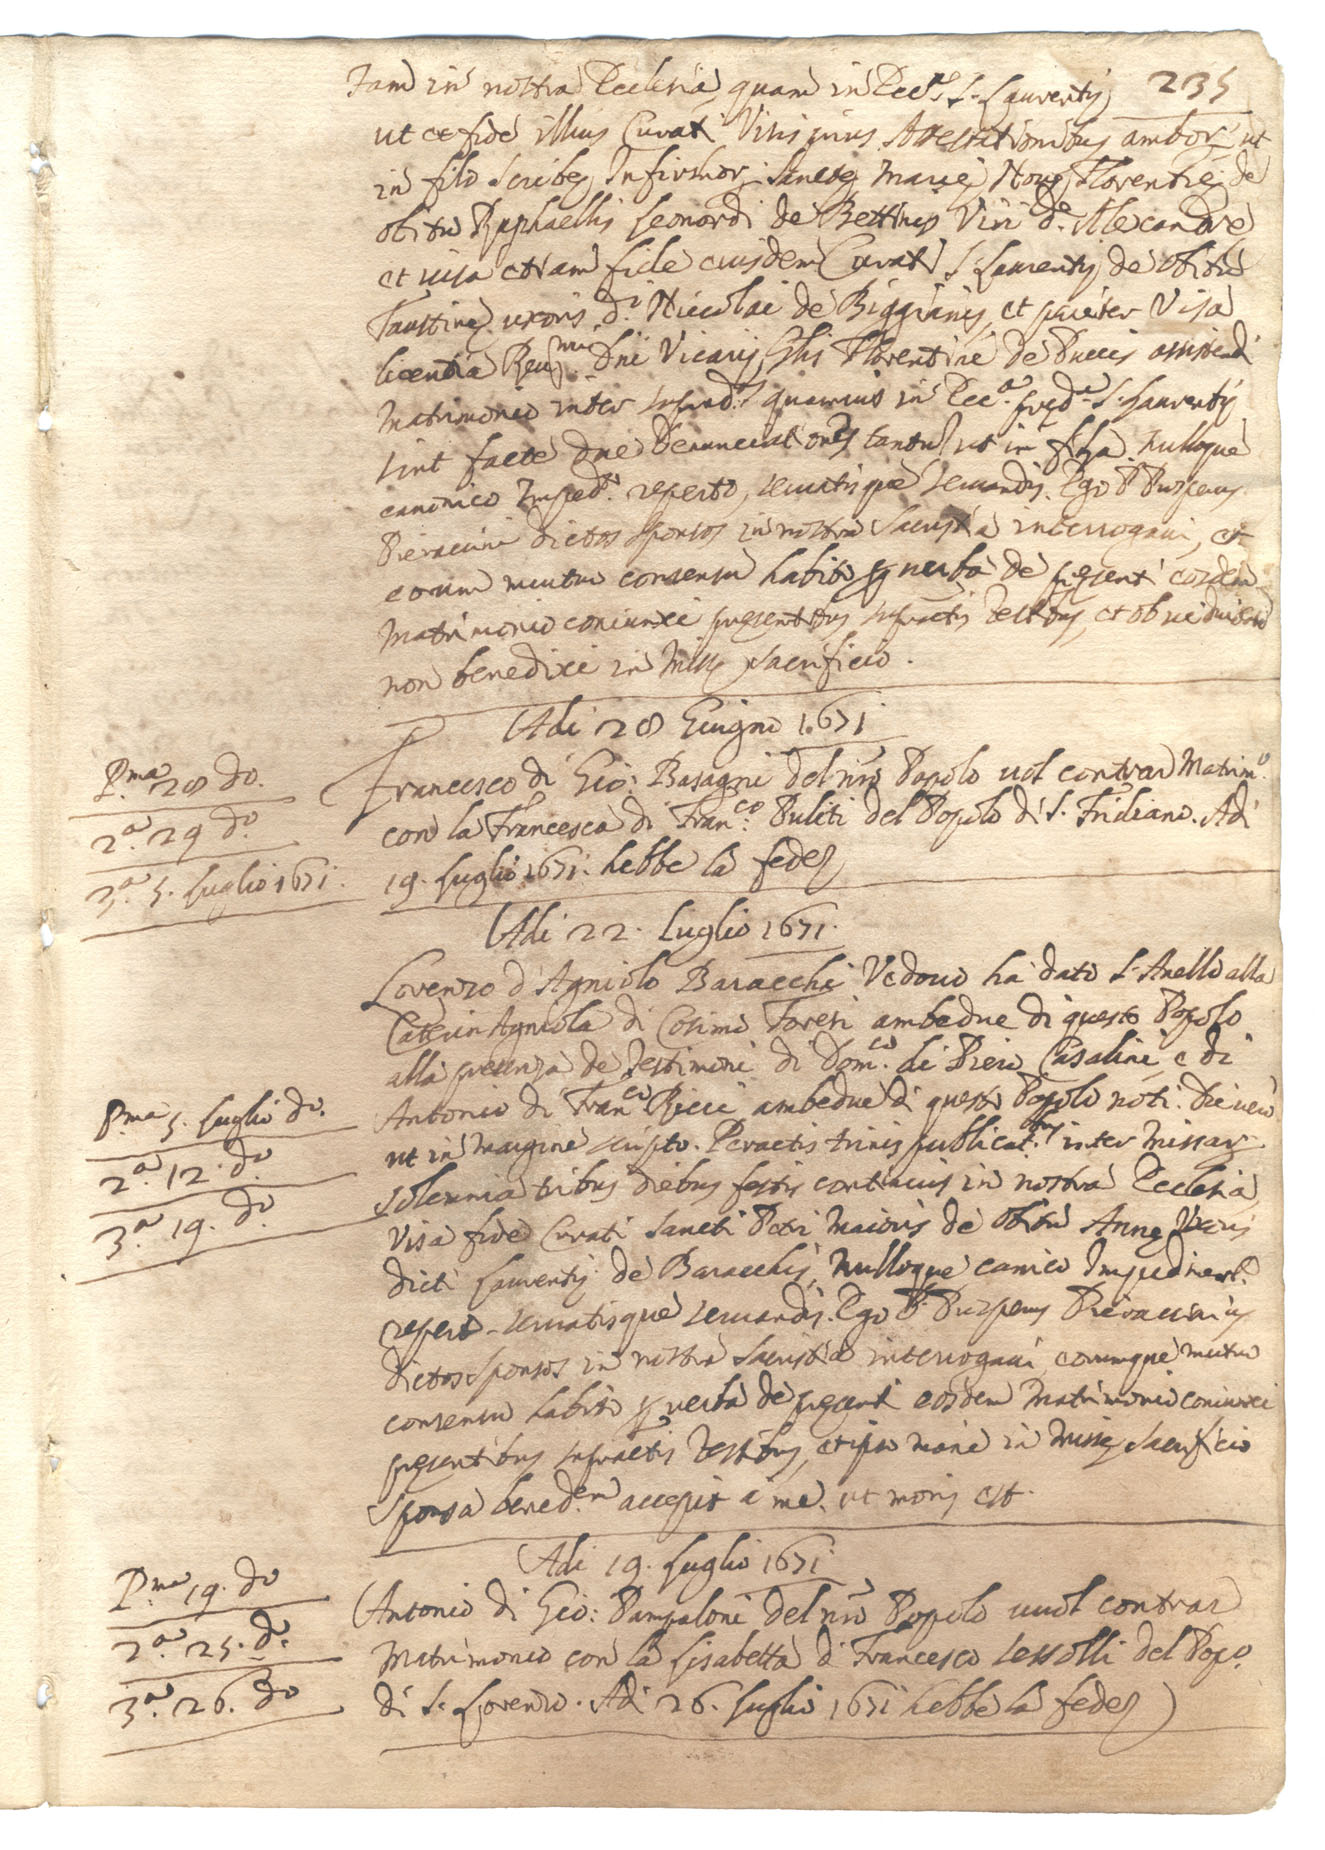 235
Tam in nostra Ecclesia, quam in Ecc.a S. Laurentij
ut ex fide illius Curati Visis prius Attestationibus ambor. ut
in filo scribe Infirmor. Sancte Marie Noue Florentie de
obitu Raphaellis Leonardi de Bettinis Viri d.e Alexandre
et visa etiam fide eiusdem Curati S. Laurentij de obitu
Faustine uxoris d.i Niccolai de Biggianis, et pariter Visa
licentia Reu.mi Dni Vicarij Glis Florentini de Puccis assistendi
Matrimonio inter infrad.s quamuis in Ecc.a pred.a S. Laurentij
sint facte due Denunciationes tantu ut in filza. Nulloque
canonico Imped.o reperto, seruatisque seruandis. Ego P. Prosperus
Pieraccini dictos sponsos in nostra Sacristia interrogaui, et
eorum mutuo consensu habito p verba de presenti eosdem
Matrimonio coniunxi presentibus infractis Testibus, et ob viduitate
non benedixi in Misse sacrificio.
Adi 28 Giugno 1671
P.ma 28 do.
2.a 29 do.
3.a 5. Luglio 1671.
Francesco di Gio: Basagni del nro Popolo uol contrar Matrim.o
con la Francesca di Fran.co Puliti del Popolo di S. Fridiano. Adi
19. Luglio 1671. hebbe la fede
Adi 22. Luglio 1671.
P.ma 5. Luglio do.
2.a 12. do
3.a 19. do.
Lorenzo d'Agniolo Baracchi Vedouo ha dato l'Anello alla
Caterin Agniola di Cosimo Foresi ambedue di questo Popolo
alla presenza de Testimoni di Dom.co di Piero Casalini, e di
Antonio di Fran.co Ricci ambedue di questo Popolo noti. Die uero
ut in margine scripto. Peractis trinis publicat.bus inter Missar.
solemnia tribus diebus festis continuis in nostra Ecclesia
Visa fide Curati Sancti Petri Maioris de obitu Anne Uxoris
dicti Laurentij de Baracchis, Nulloque canico Impedimet.o
reperto seruatisque seruandis. Ego P. Prosperus Pieraccinius
dictos sponsos in nostra Sacristia interrogaui, eorumque mutuo
consensu habito p verba de presenti eosdem Matrimonio coniunxi
presentibus infractis Testibus, et ipso mane in Misse Sacrificio
Sponsa bened.em accepit a me, ut moris est.
Adi 19. Luglio 1671
P.ma 19. do
2.a 25. do.
3.a 26. do
Antonio di Gio: Pampaloni del nro Popolo uuol contrar
Matrimonio con la Lisabetta di Francesco Sessolli del Popo.
di S. Lorenzo. Adi 26. Luglio 1671 hebbe la fede